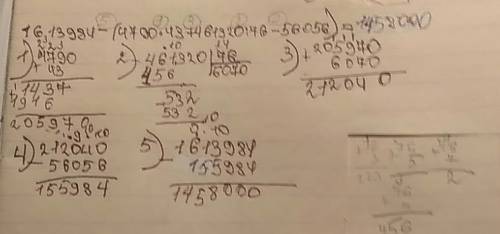 16,13984-(4790·43+461320:76-56056)=1458000
1) 4790
+ 43
1437
1916
205970
2) 461320 | 76
456 | 6070
532
532
0
3) 205970
+ 6070
212040
4) 212040
- 56056
155984
5) 1613984
- 155984
1458000
456